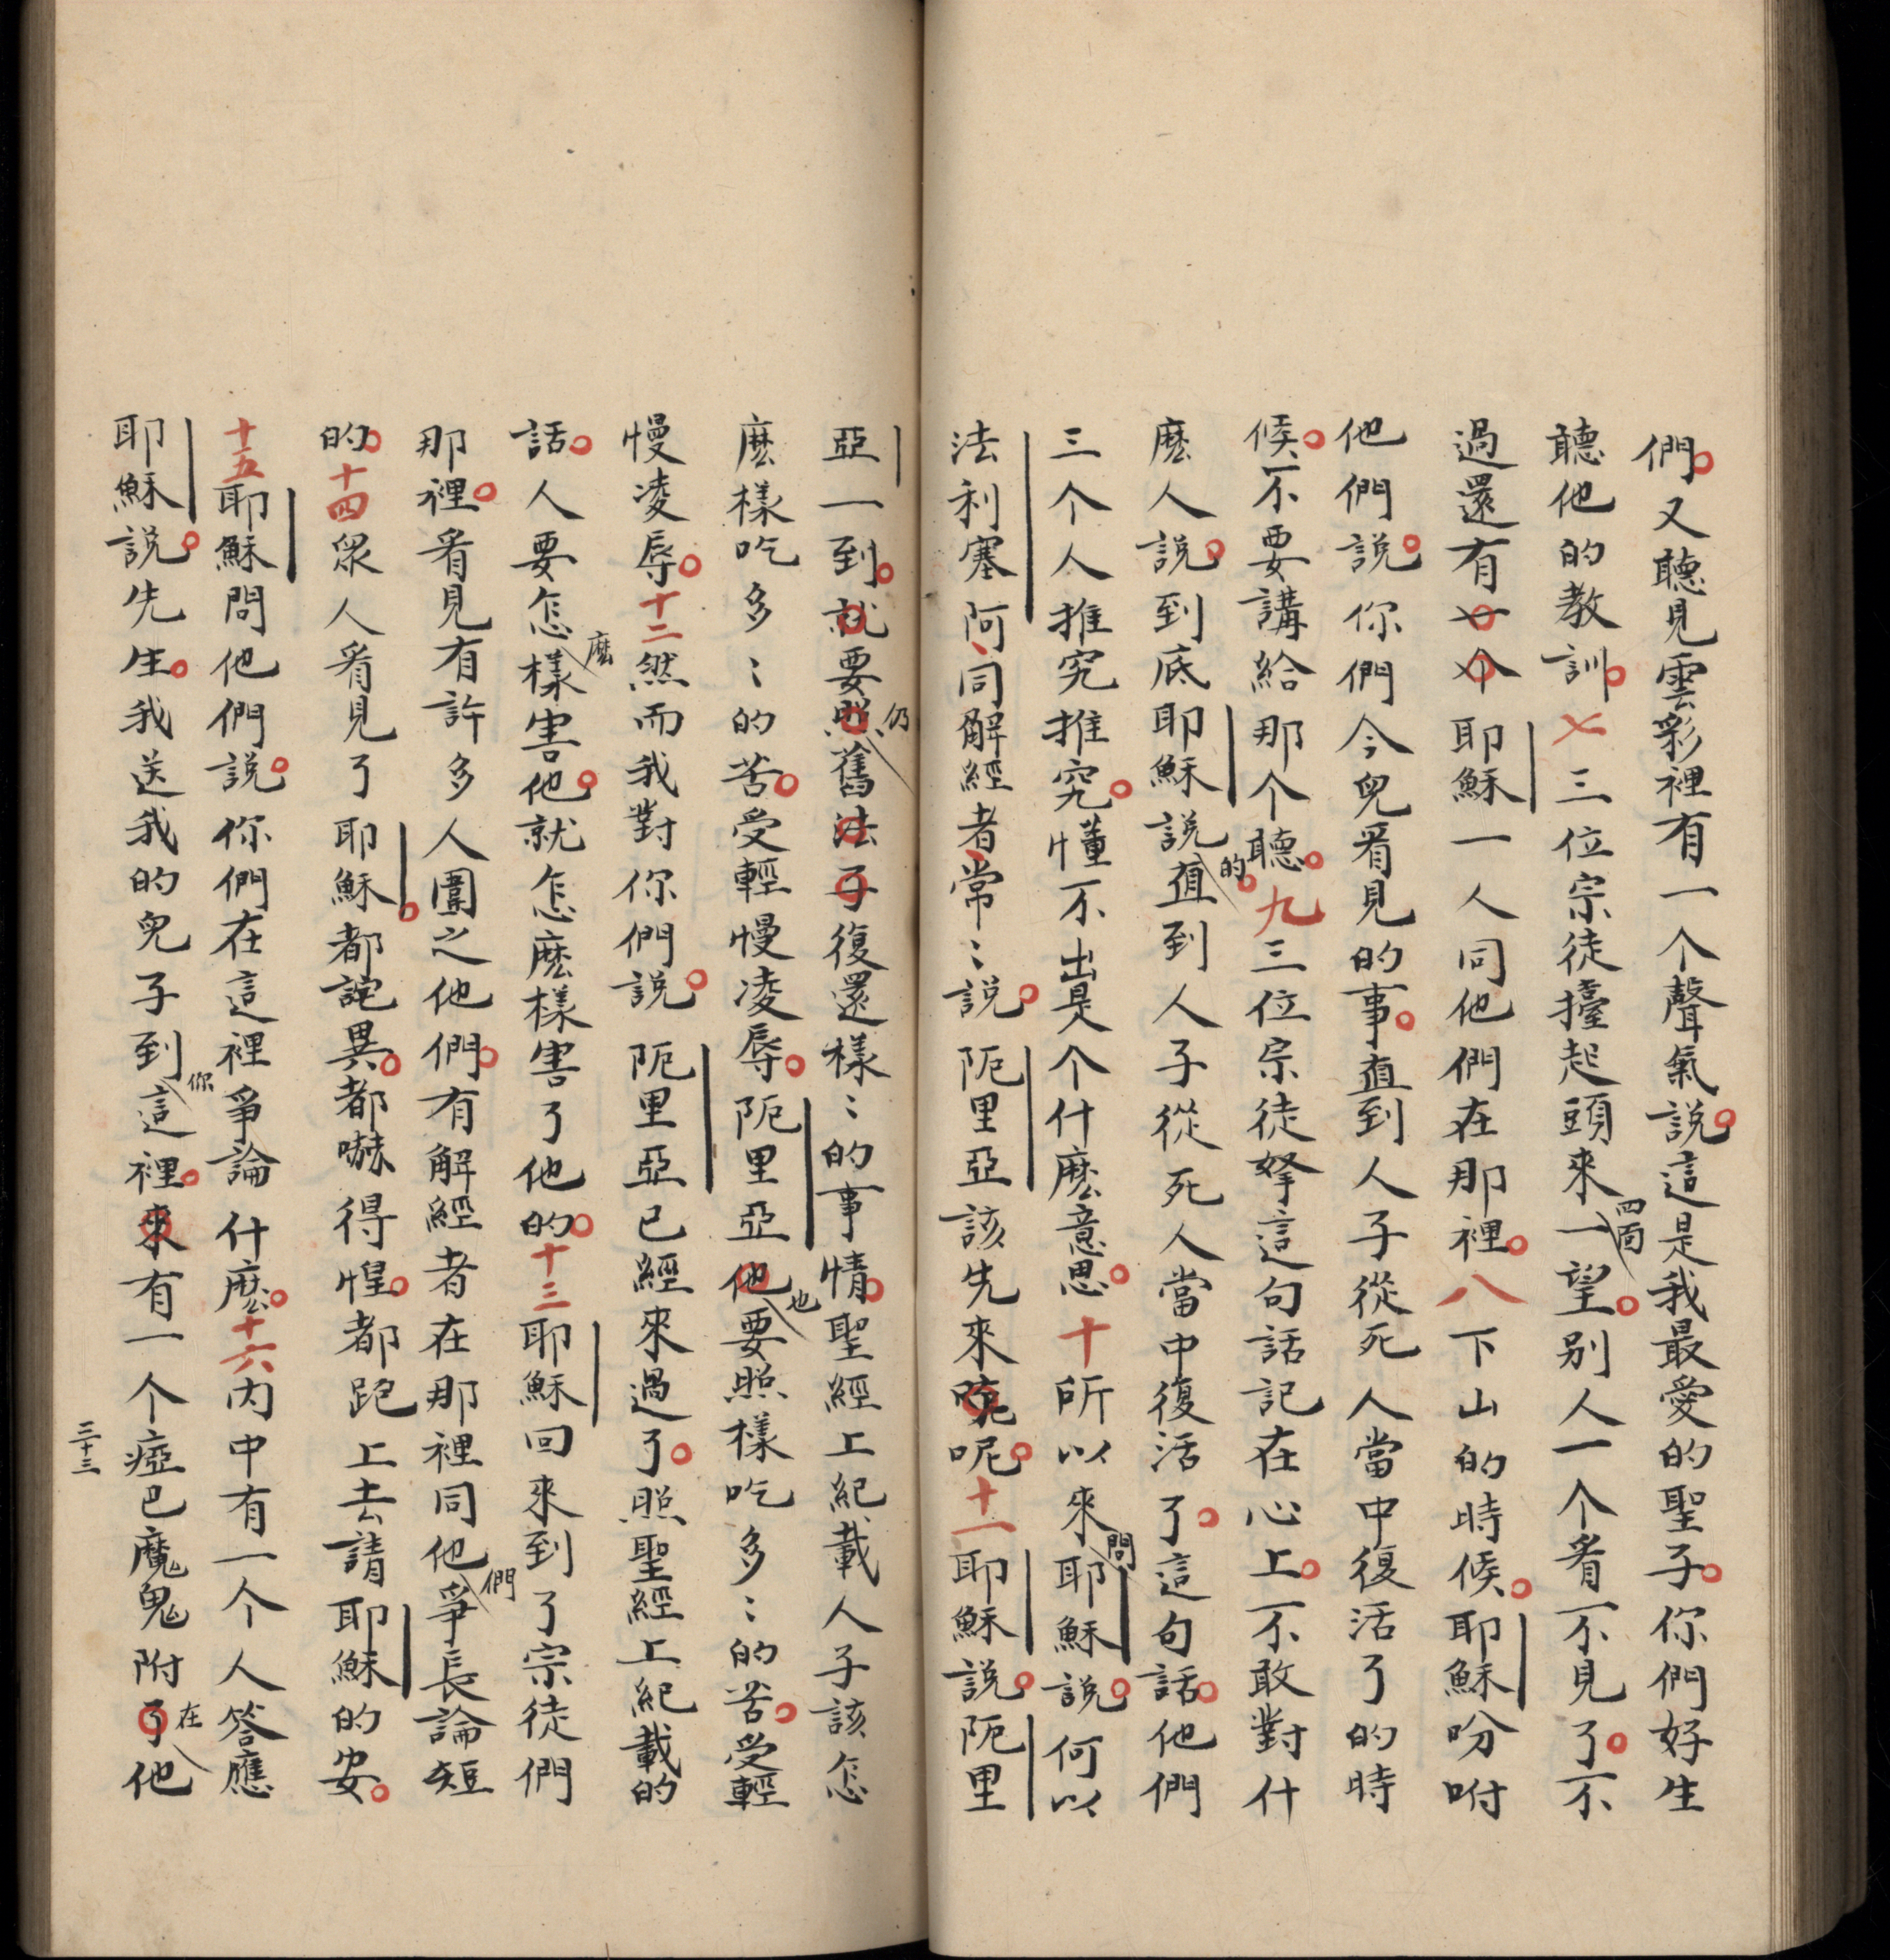 們。又聽見雲彩裡有一个聲氣說。這是我最愛的聖子。你們好生
聽他的教訓。七三位宗徒擡起頭來四面一望。别人一个看不見了。不
過還有一个耶穌一人同他們在那裡。八下山的時候。耶穌吩咐
他們說。你們今兒看見的事。直到人子從死人當中復活了的時
候。不要講給那个聽。九三位宗徒拏這句話記在心上。不敢對什
麽人說。到底耶穌說的。直到人子從死人當中復活了。這句話。他們
三个人推究推究。懂不出是个什麽意思。十所以來問耶穌說。何以
法利塞阿、同解經者、常〻說。阨里亞該先來呢。十一耶穌說。阨里
亞一到。就要照仍舊法子復還樣〻的事情。聖經上紀載人子該怎
麽樣吃多〻的苦。受輕慢凌辱。阨里亞他也要照樣吃多〻的苦。受輕
慢凌辱。十二然而我對你們說。阨里亞已經來過了。照聖經上紀載的
話。人要怎麽樣害他。就怎麽樣害了他的。十三耶穌回來到了宗徒們
那裡。看見有許多人圍之他們。有解經者在那裡同他們爭長論短
的。十四衆人看見了耶穌。都詫異。都嚇得惶。都跑上去請耶穌的安。
十五耶穌問他們說。你們在這裡爭論什麽。十六内中有一个人答應
耶穌說。先生。我送我的兒子到你這裡。來有一个瘂巴魔鬼附了在他
三十三